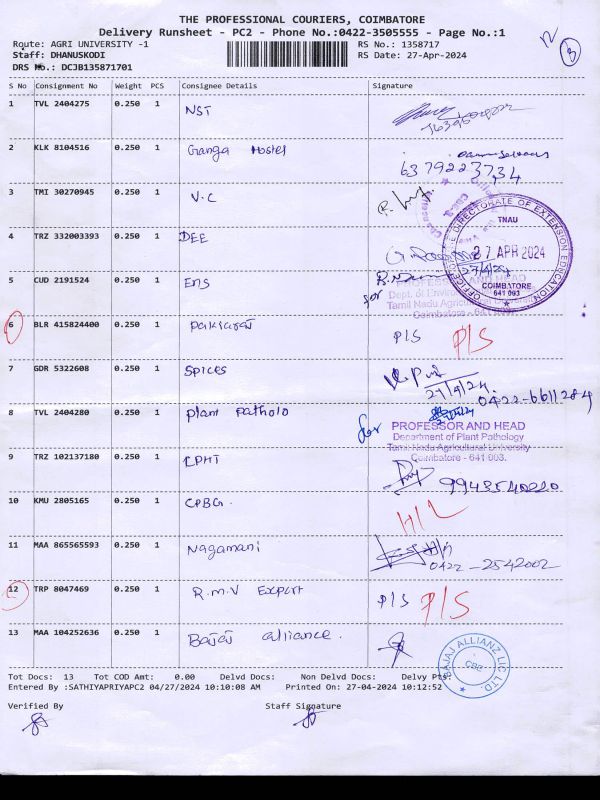 THE PROFESSIONAL COURIERS, COIMBATORE
Delivery Runsheet - PC2 - Phone No.:0422-3505555 - Page No.:1
Route: AGRI UNIVERSITY -1 RS No.: 1358717
Staff: DHANUSKODI RS Date: 27-Apr-2024
DRS No.: DCJB135871701
12
3
S No Consignment No Weight PCS Consignee Details Signature
1 TVL 2404275 0.250 1 NST
2 KLK 8104516 0.250 1 Ganga Hostel
6379223734
3 TMI 30270945 0.250 1 V.C
4 TRZ 332003393 0.250 1 DEE
OFFICE OF THE DIRECTORATE OF EXTENSION EDUCATION
TNAU
27 APR 2024
COIMBATORE
641 003
5 CUD 2191524 0.250 1 ENS
for
PROFESSOR AND HEAD
Tamil Nadu Agricultural University
Coimbatore - 641 003.
6 BLR 415824400 0.250 1 P/S P/S
7 GDR 5322608 0.250 1 SPICES
27/4/24
0422-6611284
8 TVL 2404280 0.250 1 Plant Patholo
for
PROFESSOR AND HEAD
Department of Plant Pathology
Tamil Nadu Agricultural University
Coimbatore - 641 003.
9 TRZ 102137180 0.250 1 CPHT
9943540220
10 KMU 2805165 0.250 1 CPBG. H/L
11 MAA 865565593 0.250 1 Nagamani
0422-2542002
12 TRP 8047469 0.250 1 R.M.V Export P/S P/S
13 MAA 104252636 0.250 1 Bajaj alliance.
BAJAJ ALLIANZ LIC LTD.
CBE
Tot Docs: 13 Tot COD Amt: 0.00 Delvd Docs: Non Delvd Docs: Delvy Pts:
Entered By :SATHIYAPRIYAPC2 04/27/2024 10:10:08 AM Printed On: 27-04-2024 10:12:52
Verified By Staff Signature